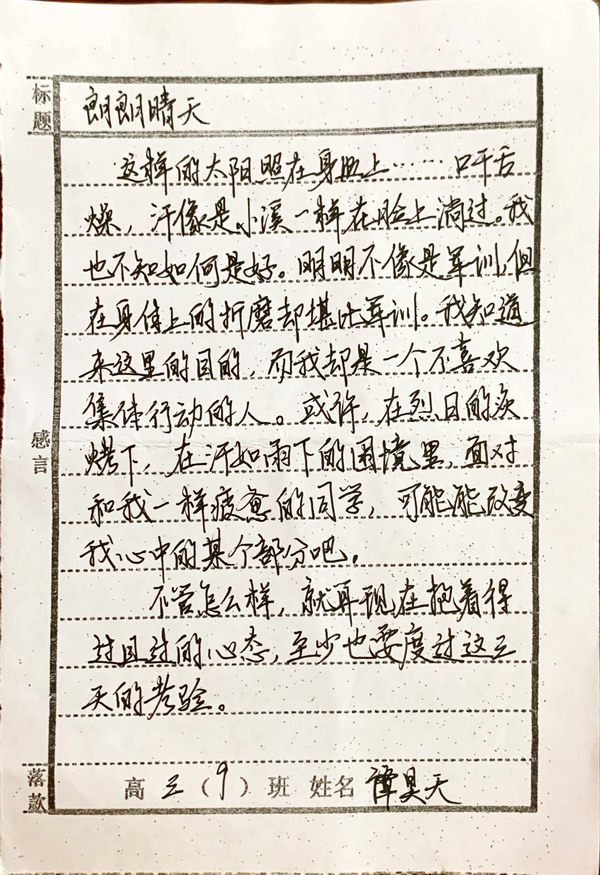 标题
朗朗晴天
这样的太阳照在身上……口干舌
燥，汗像是小溪一样在脸上淌过。我
也不知如何是好。明明不像是军训，但
在身体上的折磨却堪比军训。我知道
来这里的目的，而我却是一个不喜欢
集体行动的人。或许，在烈日的炎
烤下，在汗如雨下的困境里，面对
和我一样疲惫的同学，可能能改变
我心中的某个部分吧。
感言
不管怎么样，就算现在抱着得
过且过的心态，至少也要度过这三
天的考验。
落款
高三（9）班 姓名 谭昊天